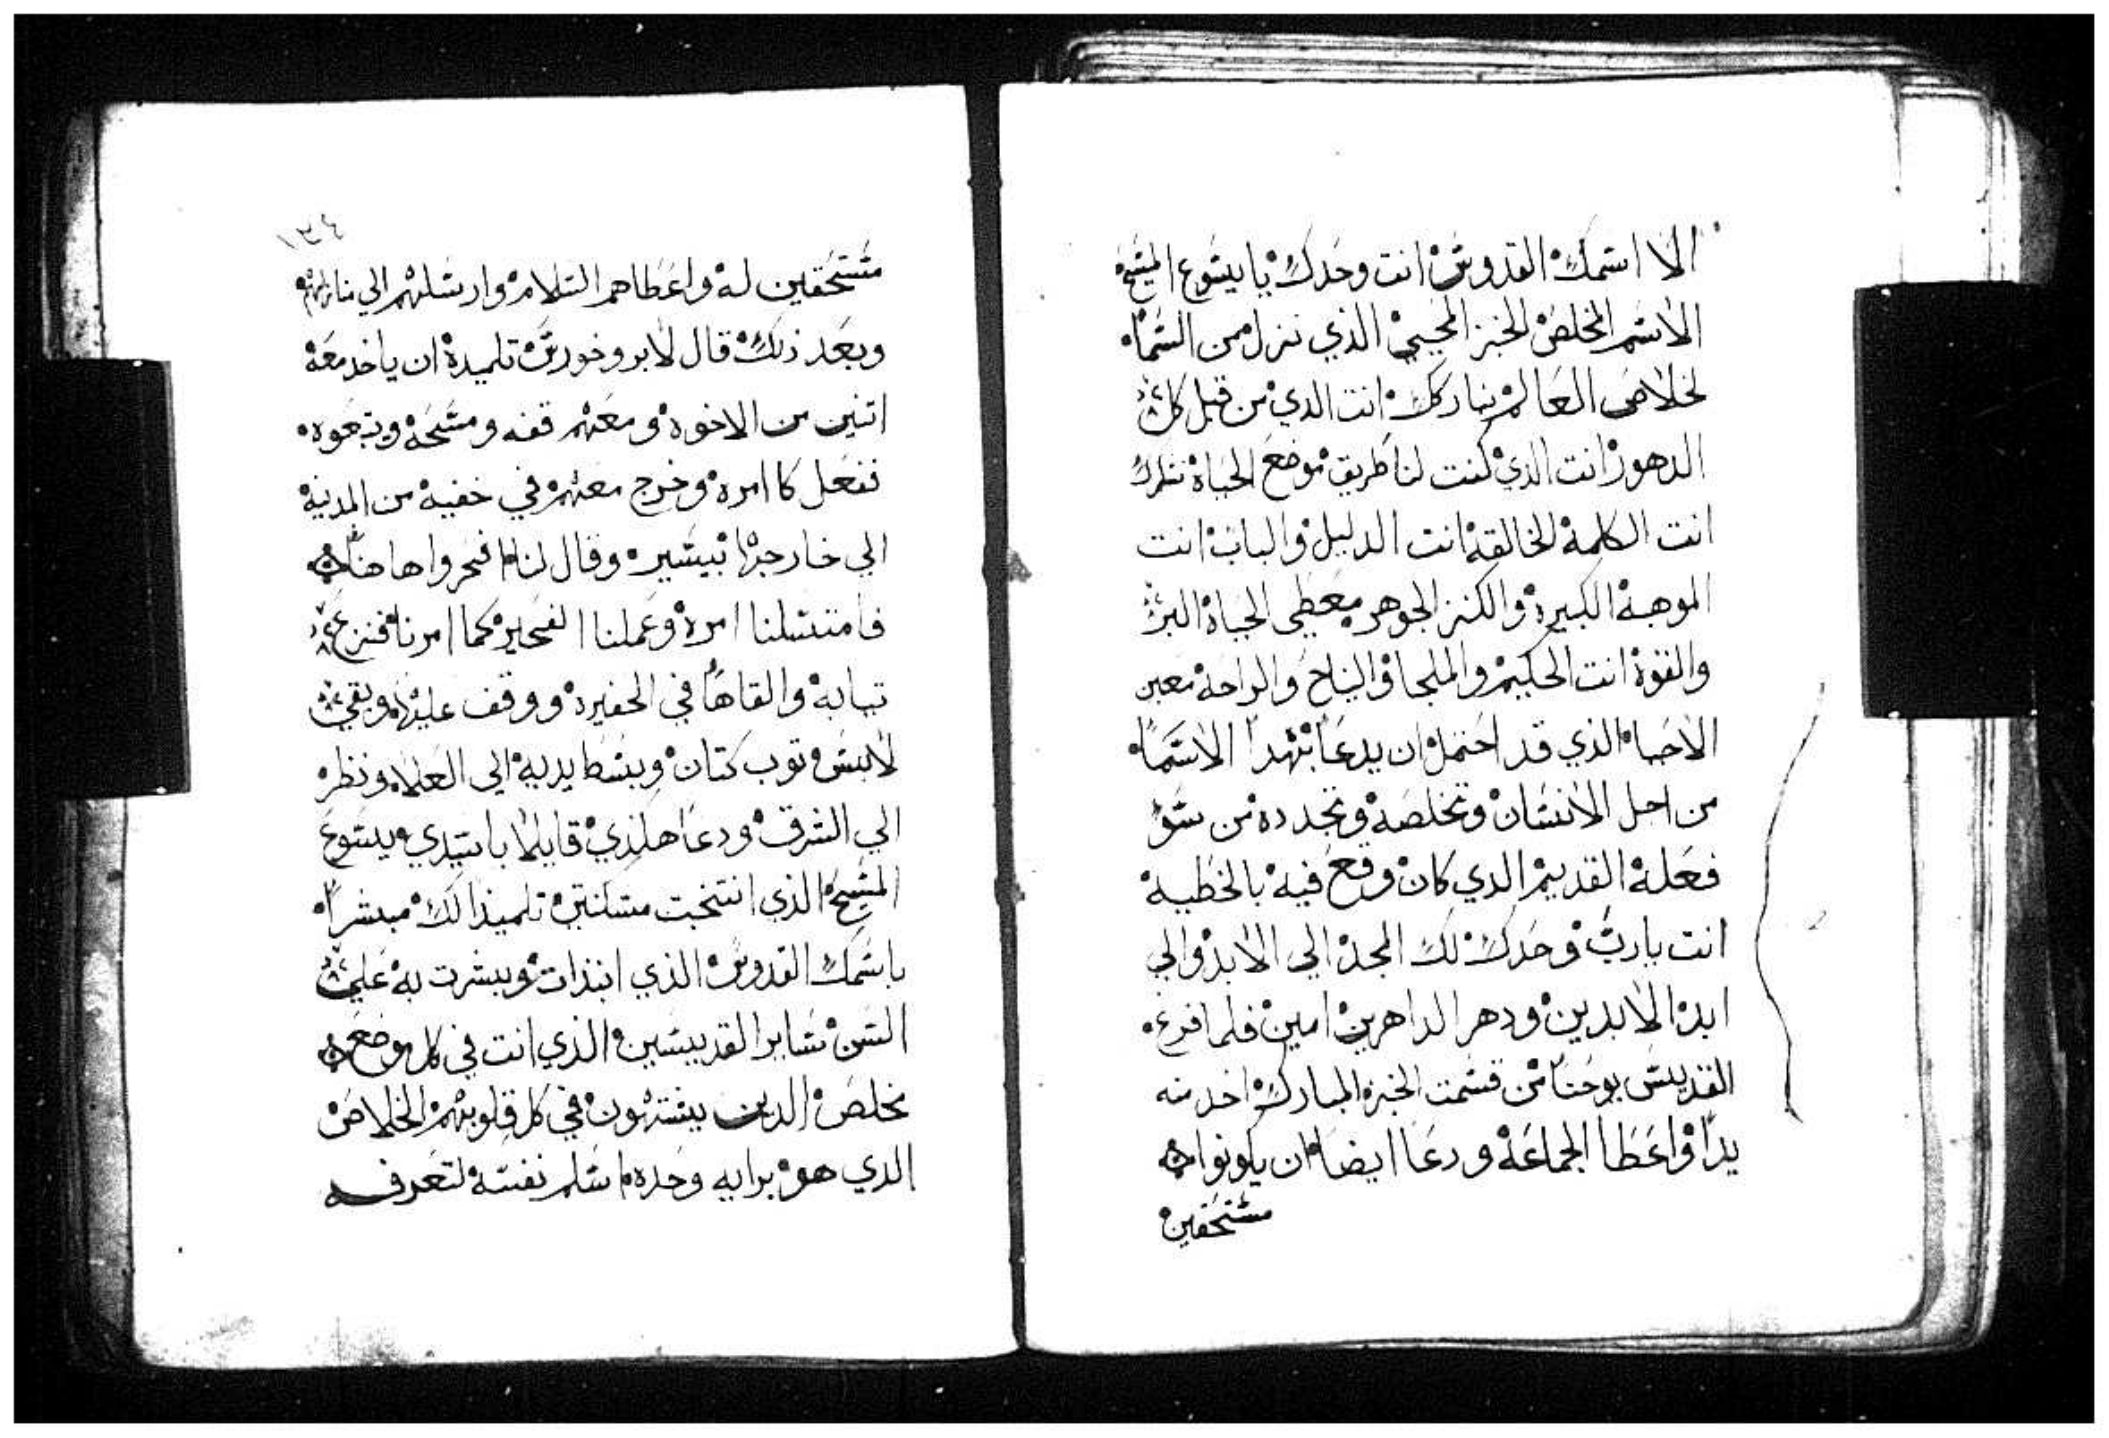 الا اسمك القدوس انت وحدك يا يسوع المسيح
الاسم المخلص الخبز المحيي الذي نزل من السما
لخلاص العالم نباركك انت الدي من قبل كل
الدهور انت الدي كنت لنا طريق موضع الحياة نشكرك
انت الكلمة الخالقة انت الدليل والباب انت
الموهبة الكبيرة والكنز الجوهر معطي الحياة البر
والقوة انت الحكيم والملجا والنياح والراحة معين
الاحيا الذي قد احتمل ان يدعا بهدا الاسما
من اجل الانسان وتخلصه وتجدده من سو
فعله القديم الدي كان وقع فيه بالخطية
انت يارب وحدك لك المجد الي الابد والي
ابد الابدين ودهر الداهرين امين فلما افرغ
القديس يوحنا من قسمت الخبزه المباركة اخد منه
يدا واعطا الجماعة ودعا ايضا ان يكونوا
مستحقين
١٣٤
مستحقين له واعطاهم السلام وارسلهم الي منازلهم
وبعد ذلك قال لابروخورس تلميدة ان ياخد معه
اتنين من الاخوة ومعهم قفه ومسحة ويتبعوه
ففعل كا امره وخرج معهم في خفيه من المدينة
الي خارجها بيسير وقال لنا افحروا هاهنا
فامتتسلنا امرة وعملنا الفحير كما امرنا فنزع
تيابه والقاها في الحفيره ووقف عليها وبقي
لابس توب كتان وبسط يديه الي العلا ونظر
الي الشرق ودعا هكذي قايلا يا سيدي يسوع
المسيح الذي انتخبت مسكنتي تلميذا لك مبشرا
باسمك القدوس الذي انبذات وبشرت به علي
السن ساير القديسين الذي انت في كل موضع
تخلص الدين يشتهون في كل قلوبهم الخلاص
الدي هو برايه وحده اسلم نفسه لتعرفه